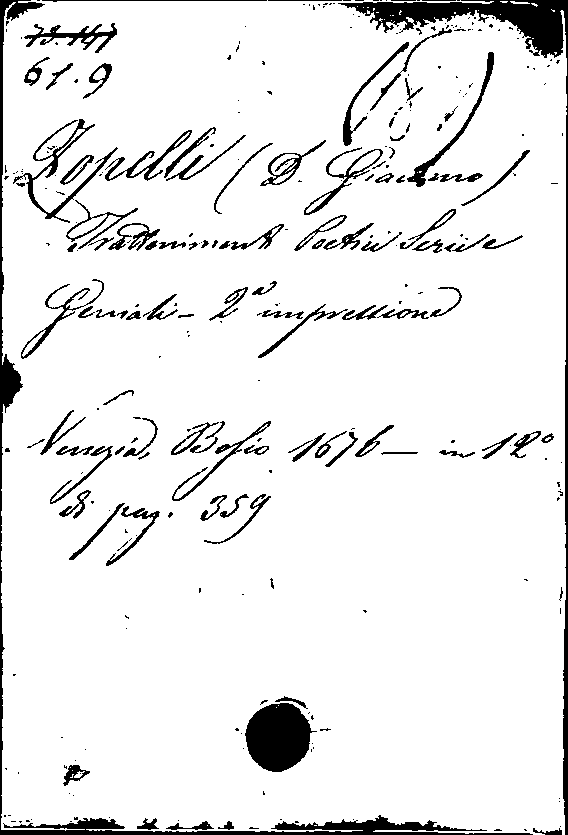 73.147
61.9
Zopelli (D. Giacomo)
Trattenimenti Poetici Serii e
Geniali - 2ª impressione
Venezia, Bosio 1676 - in 12º
di pag. 359